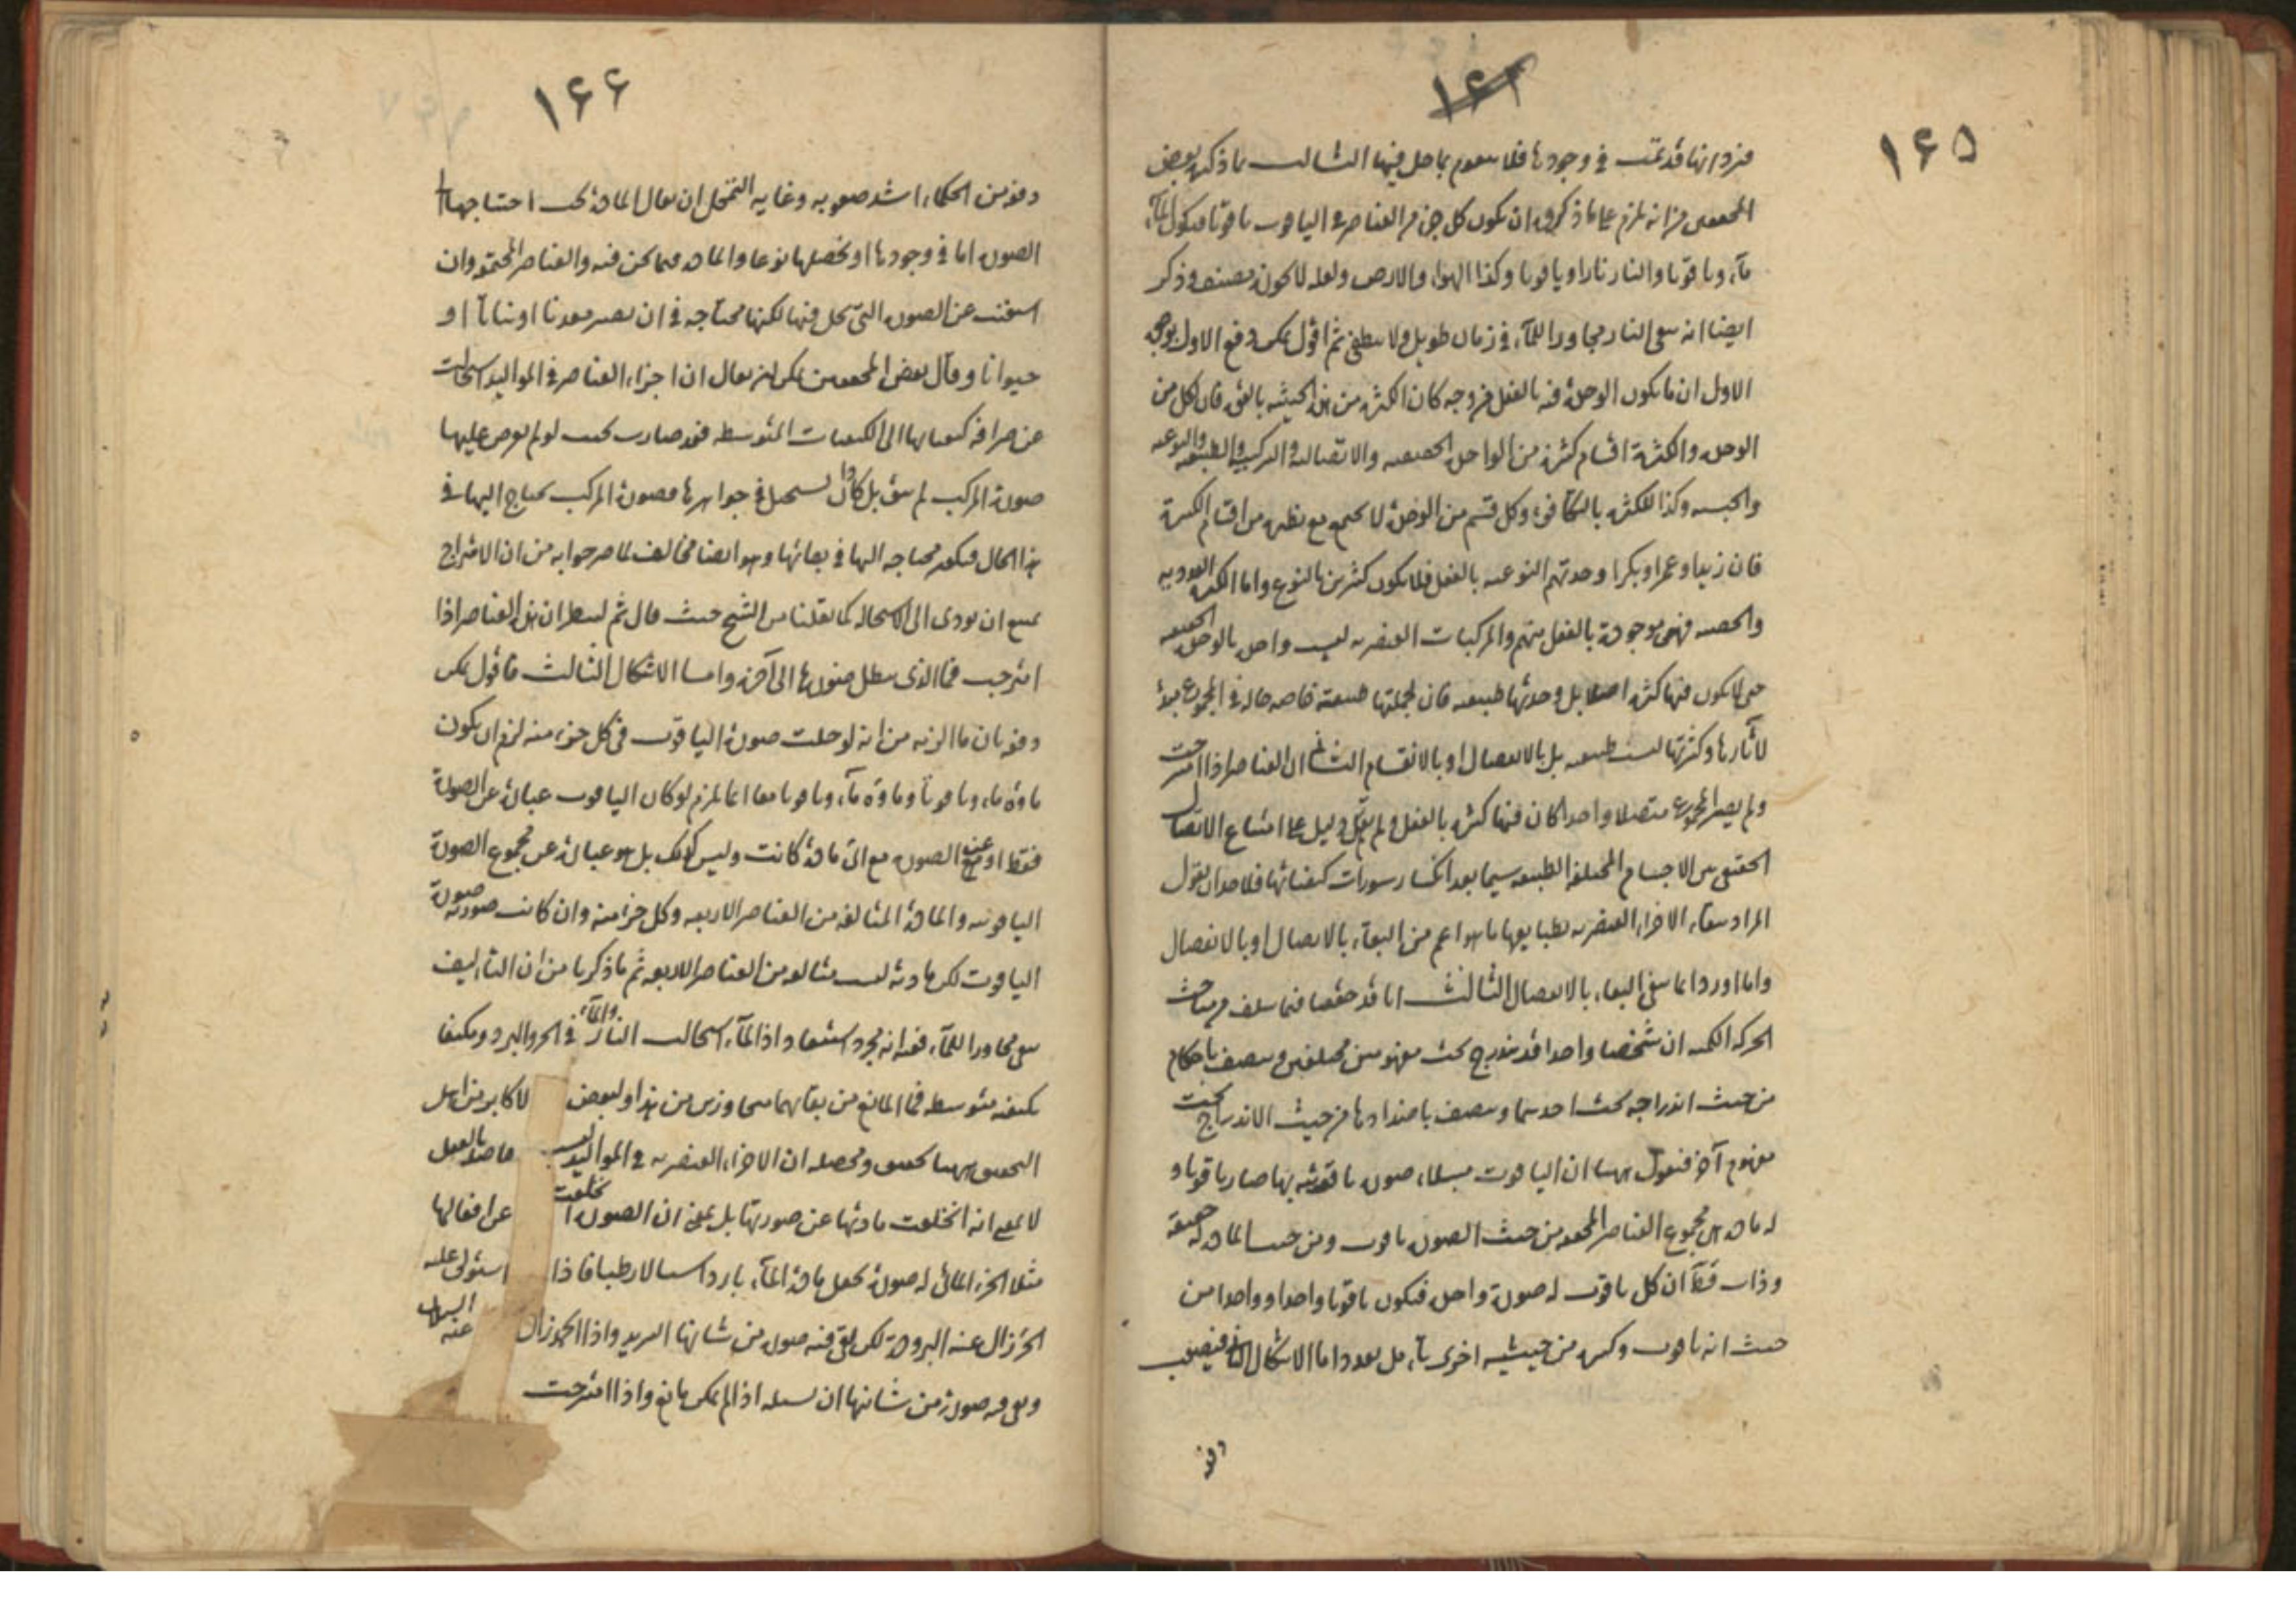 ١٦٥
١٦٢
فی وجودها فلا یتقوم بما حل فیها الثالث ما ذکره بعض
من انه یلزم علی ما ذکروه ان یکون کل جزء من العناصر فی الیاقوت یاقوتا فیکون الماء
ماء ویاقوتا والنار نارا ویاقوتا وکذا الهواء والارض ولعله لا یکون وذکر
ایضا انه یبقی النار مجاورا للماء فی زمان طویل ولا ینطفی ثم اقول یمکن دفع الاول بوجوه
الاول ان ما یکون الوحدة فیه بالفعل من وجه کان الکثرة من هذه الحیثیة بالقوة فان لکل من
الوحدة والکثرة اقسام کثیرة من الواحد الحقیقیة والاتصالیة والترکیبیة والطبیعیة والنوعیة
والجنسیة وکذا للکثرة وکل قسم من الوحدة لا یجتمع مع نظیره من اقسام الکثرة
فان زیدا وعمرا وبکرا وحدتهم النوعیة بالفعل فلا یکون کثرتهم بالنوع واما الکثرة العددیة
فهی موجودة بالفعل منهم والمرکبات العنصریة لیست واحدة بالوحدة الحقیقیة
حتی لا یکون فیها کثرة اصلا بل وحدتها طبیعیة فان لجملتها طبیعة خاصة حالة فی المجموع مبدأ
لآثارها وکثرتها لیست طبیعیة بل بالانفصال او بالانقسام الثانی ان العناصر اذا امتزجت
ولم یصر المجموع متصلا واحدا کان فیها کثرة بالفعل ولم یقم دلیل علی امتناع الاتصال
الحقیقی بین الاجسام المختلفة الطبیعة سیما بعد انکسار سورات کیفیاتها فلاحد ان یقول
المراد ببقاء الاجزاء العنصریة بطبایعها ما هو اعم من البقاء بالاتصال او بالانفصال
واما اورد انما ینفی البقاء بالانفصال الثالث انا قد حققنا فیما سلف من مباحث
الحرکة الکمیة ان شخصا واحدا قد یندرج تحت مفهومین مختلفین ویتصف باحکام
من حیث اندراجه تحت احدهما ویتصف باضدادها من حیث الاندراج تحت
مفهوم آخر فنقول ههنا ان الیاقوت مثلا له صورة یاقوتیة بها صار یاقوتا و
له مادة هی مجموع العناصر المجتمعة من حیث الصورة یاقوت ومن حیث المادة له حقیقة
وذات کل یاقوت له صورة واحدة فیکون یاقوتا واحدا وواحدا من
حیث انه یاقوت وکثیر من حیثیة اخری واما الاشکال الثانی فیصعب
دفعه
١٦٦
دفعه من الحکماء اشد صعوبة وغایة التمحل ان یقال المادة یجب احتیاجها الی
الصورة اما فی وجودها او تحصلها نوعا والمادة فیما نحن فیه والعناصر المجتمعة وان
استغنت عن الصورة التی تحل فیها لکنها محتاجة فی ان یصیر معدنا او نباتا او
حیوانا وقال بعض المحققین یمکن ان یقال ان اجزاء العناصر فی الموالید استحالت
عن صرافة کیفیاتها الی الکیفیات المتوسطة فقد صارت بحیث لو لم یعرض علیها
صورة المرکب لم یبق بل کاد ان یستحیل فی جواهرها فصورة المرکب یحتاج الیها فی
هذا الحال فیکون محتاجة الیها فی بقائها وهو ایضا مخالف لما صرحوا به من ان الامتزاج
یمنع ان یؤدی الی الاستحالة کما نقلنا من الشیخ حیث قال ثم لینظر ان هذه العناصر اذا
امتزجت فما الذی یبطل صورها الی آخره واما الاشکال الثالث فاقول یمکن
دفعه بان ما الزمه من انه لو حلت صورة الیاقوت فی کل جزء منه لزم ان یکون
ماؤه ماء ویاقوتا معا انما یلزم لو کان الیاقوت عبارة عن الصورة
فقط او عن الصورة مع ای مادة کانت ولیس کذلک بل هو عبارة عن مجموع الصورة
الیاقوتیة والمادة المتالفة من العناصر الاربعة وکل جزء منه وان کانت صورته صورة
الیاقوت لکن مادته لیست متالفة من العناصر الاربعة ثم ما ذکره من ان النار کیف
یبقی مجاورا للماء ففیه انه مجرد استبعاد اذ الماء استحالت النار والماء فی الحر والبرد وتکیفا
بکیفیة متوسطة فما المانع من بقائهما متجاورین من هذا ولبعض الاکابر من اهل
التحقیق ههنا تحقیق ومحصله ان الاجزاء العنصریة فی الموالید لیست حاصلة بالفعل
لا بمعنی انه انخلعت مادتها عن صورتها بل بمعنی ان الصورة انخلعت عن افعالها
مثلا الجزء المائی له صورة یجعل مادة الماء باردا سیالا رطبا فاذا استولی علیه
الحر زال عنه البرودة لکن بقی فیه صورة من شانها التبرید واذا انجمد زال عنه السیلان
وبقی فیه صورة من شانها ان یسیله اذا لم یکن مانع واذا امتزجت